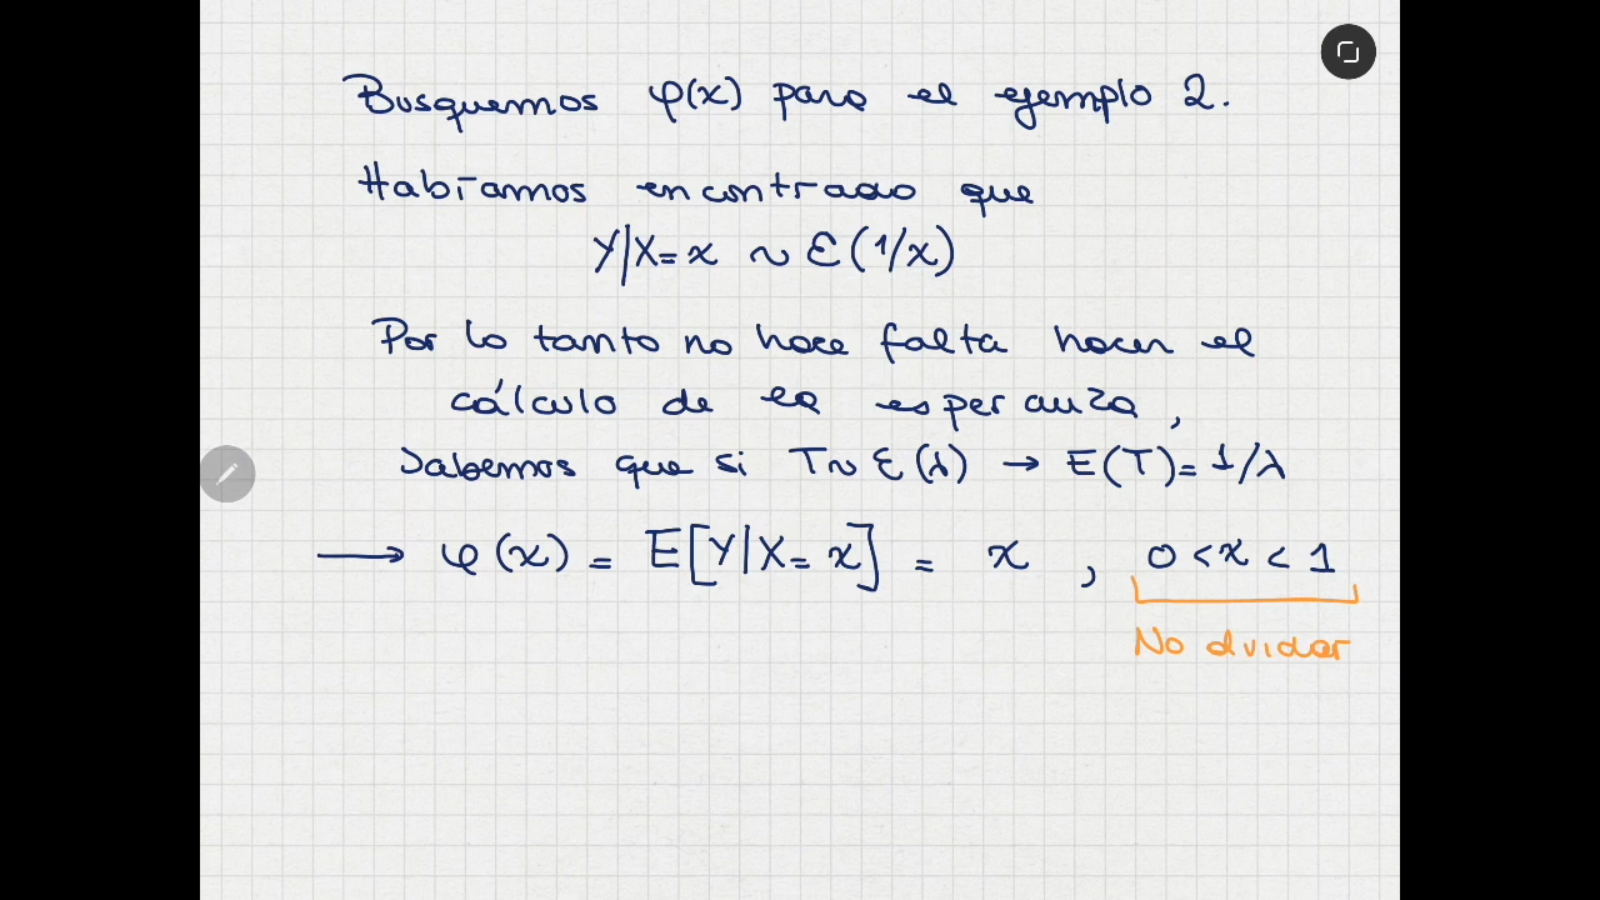 Busquemos φ(x) para el ejemplo 2.
Habíamos encontrado que
Y|X=x ~ ε(1/x)
Por lo tanto no hace falta hacer el
cálculo de la esperanza,
Sabemos que si T~ε(λ) → E(T)=1/λ
→ φ(x) = E[Y|X=x] = x , 0<x<1
No olvidar